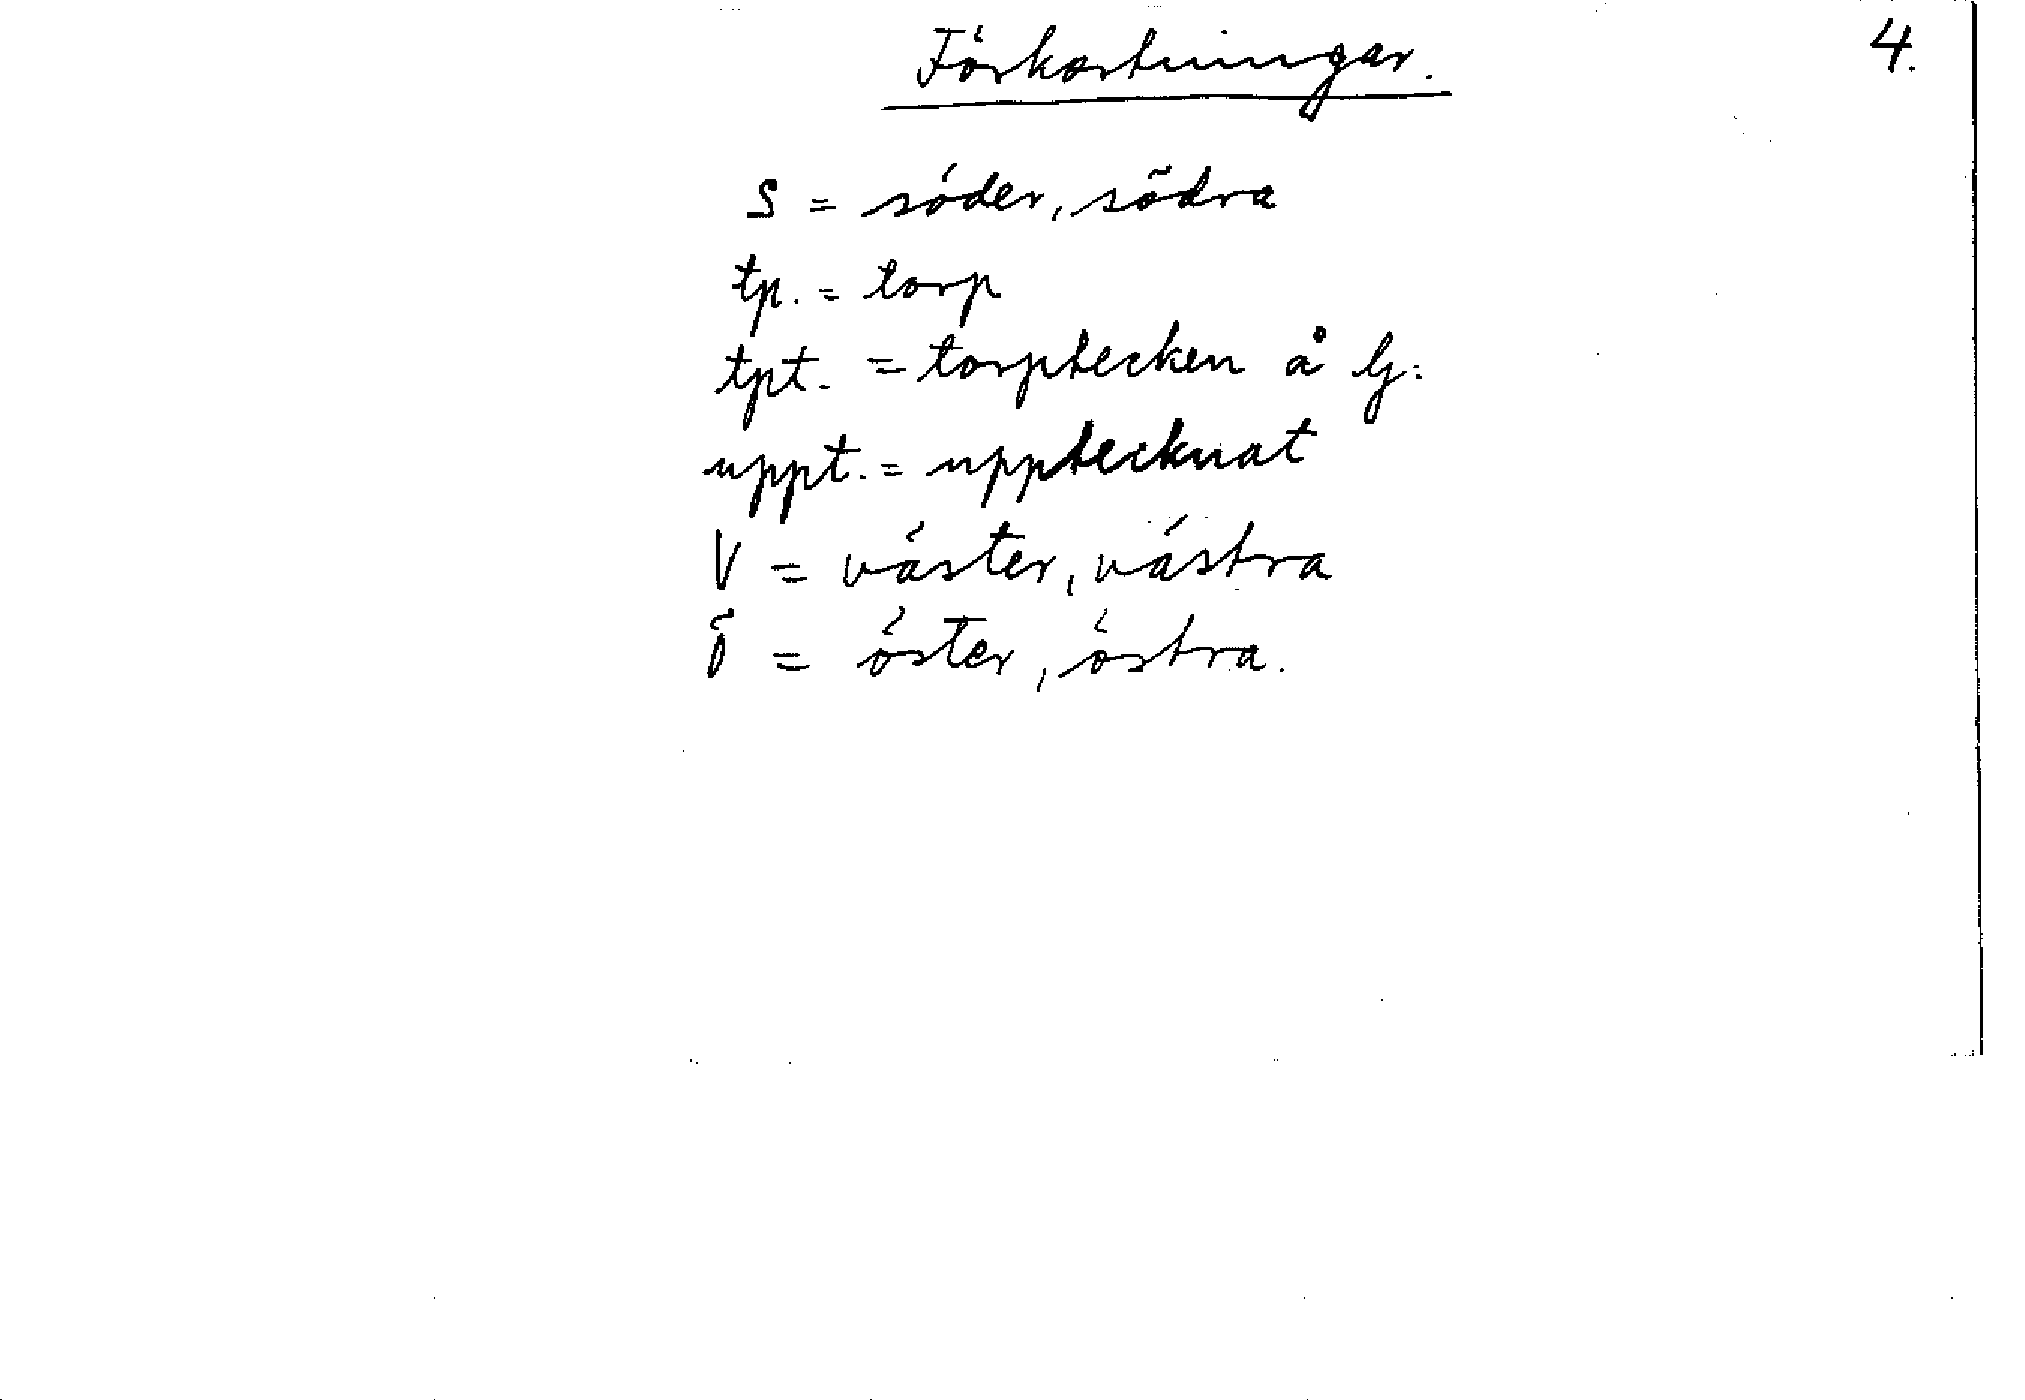 Förkortningar.
4.
S = söder, södra
tp. = torp
tpt. = torptecken å
uppt. = upptecknat
V = väster, västra
Ö = öster, östra.